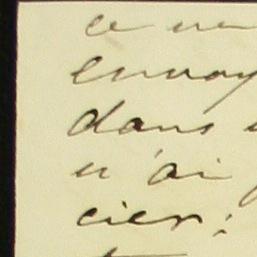 ce
envoy
dans
n'ai
cier;